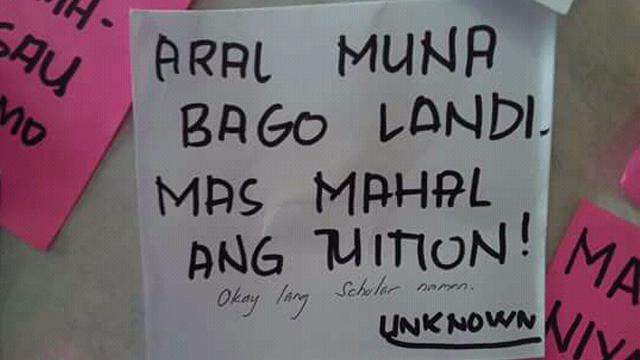 ARAL MUNA
BAGO LANDI.
MAS MAHAL
ANG TUITION!
Okay lang Scholar namen.
UNKNOWN
SAU
MO
MA